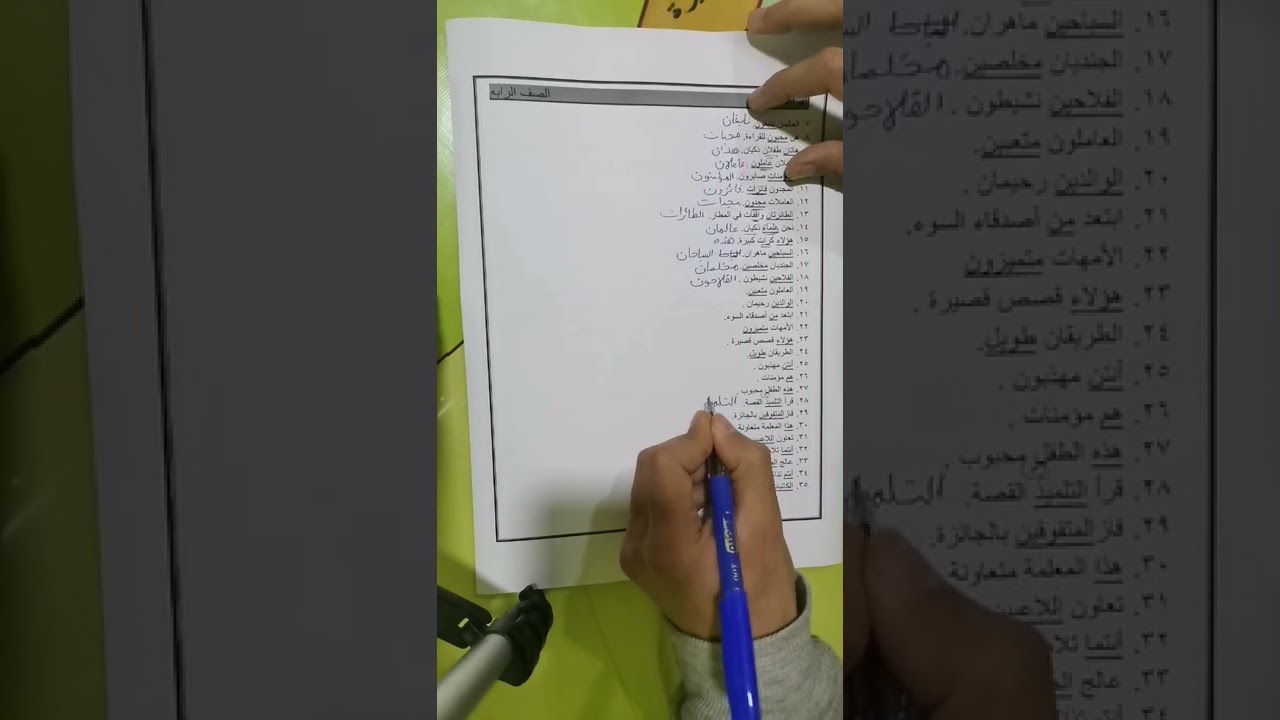 الصف الرابع
٧. العالمان
٨. هن محبون للقراءة. محبات
هاتان طفلان ذكيان. هذان
عاملون. عاملان
صابرون. المؤمنون
١١. المجدون فائزات. فائزون
١٢. العاملات مجدون. مجدات
١٣. الطائرتان واقفات في المطار. الطائرات
١٤. نحن علماء ذكيان. عالمان
١٥. هؤلاء كرات كبيرة. هذه
١٦. السباحين ماهران. السباحان
١٧. الجنديان مخلصين. مخلصان
١٨. الفلاحين نشيطون. الفلاحون
١٩. العاملون متعبين.
٢٠. الوالدين رحيمان.
٢١. ابتعد من أصدقاء السوء.
٢٢. الأمهات متميزون
٢٣. هؤلاء قصص قصيرة.
٢٤. الطريقان طويل.
٢٥. أنتن مهذبون.
٢٦. هم مؤمنات.
٢٧. هذه الطفل محبوب.
٢٨. قرأ التلميذ القصة. التلميذ
٢٩. فاز المتفوقين بالجائزة.
٣٠. هذا المعلمة متعاونة
٣١. تعاون اللاعبين
٣٢. أنتما
٣٣. عالج
٣٤. أنتم
٣٥.